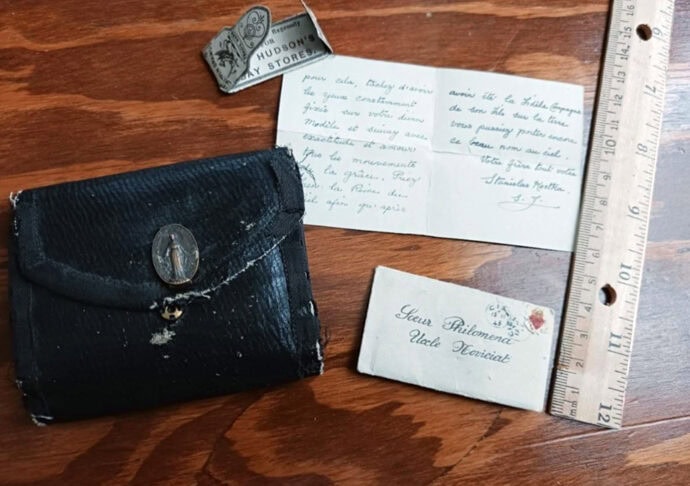 Regency
HUDSON'S
BAY STORES.
pour cela, tâchez d'avoir
les yeux constamment
fixés sur votre divin
Modèle et suivez avec
exactitude et amour
les mouvements
de la grâce. Priez
la Reine du
afin qu'après
avoir été la fidèle Compagne
de son fils sur la terre
vous puissiez porter encore
ce beau nom au ciel.
Votre frère tout vôtre
Stanislas Kostka
S. J.
Soeur Philomena
Uccle Noviciat
9
10
11
12
mm 1 2 3 4 5 6 7 8 9 10 11 12 13 14 15 16